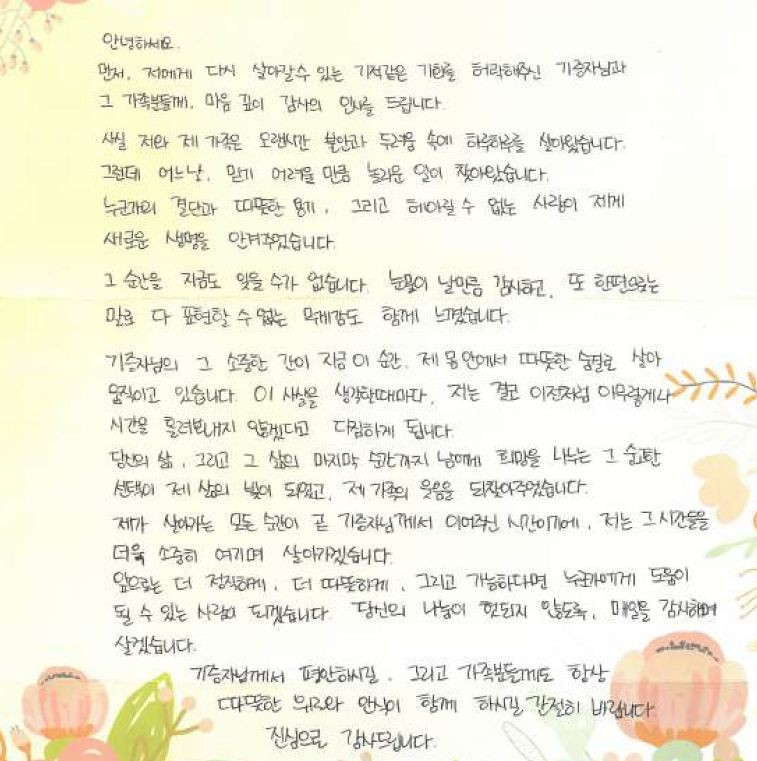 안녕하세요.
먼저, 저에게 다시 살아갈 수 있는 기적같은 기회를 허락해주신 기증자님과
그 가족분들께, 마음 깊이 감사의 인사를 드립니다.
사실 저와 제 가족은 오랜시간 불안과 두려움 속에 하루하루를 살아왔습니다.
그런데 어느날, 믿기 어려울 만큼 놀라운 일이 찾아왔습니다.
누군가의 결단과 따뜻한 용기, 그리고 헤아릴 수 없는 사랑이 제게
새로운 생명을 안겨주었습니다.
그 순간을 지금도 잊을 수가 없습니다. 눈물이 날만큼 감사하고, 또 한편으로는
말로 다 표현할 수 없는 먹먹함도 함께 느꼈습니다.
기증자님의 그 소중한 간이 지금 이 순간, 제 몸 안에서 따뜻한 숨결로 살아
움직이고 있습니다. 이 사실을 생각할때마다, 저는 결코 이전처럼 아무렇게나
시간을 흘려보내지 않겠다고 다짐하게 됩니다.
당신의 삶, 그리고 그 삶의 마지막 순간까지 남에게 희망을 나누는 그 숭고한
선택이 제 삶의 빛이 되었고, 제 가족의 웃음을 되찾아주었습니다.
제가 살아가는 모든 순간이 곧 기증자님께서 이어주신 시간이기에, 저는 그 시간들을
더욱 소중히 여기며 살아가겠습니다.
앞으로는 더 정직하게, 더 따뜻하게, 그리고 가능하다면 누군가에게 도움이
될 수 있는 사람이 되겠습니다. 당신의 나눔이 헛되지 않도록, 매일을 감사하며
살겠습니다.
기증자님께서 평안하시길, 그리고 가족분들께도 항상
따뜻한 위로와 안식이 함께 하시길 간절히 바랍니다.
진심으로 감사드립니다.